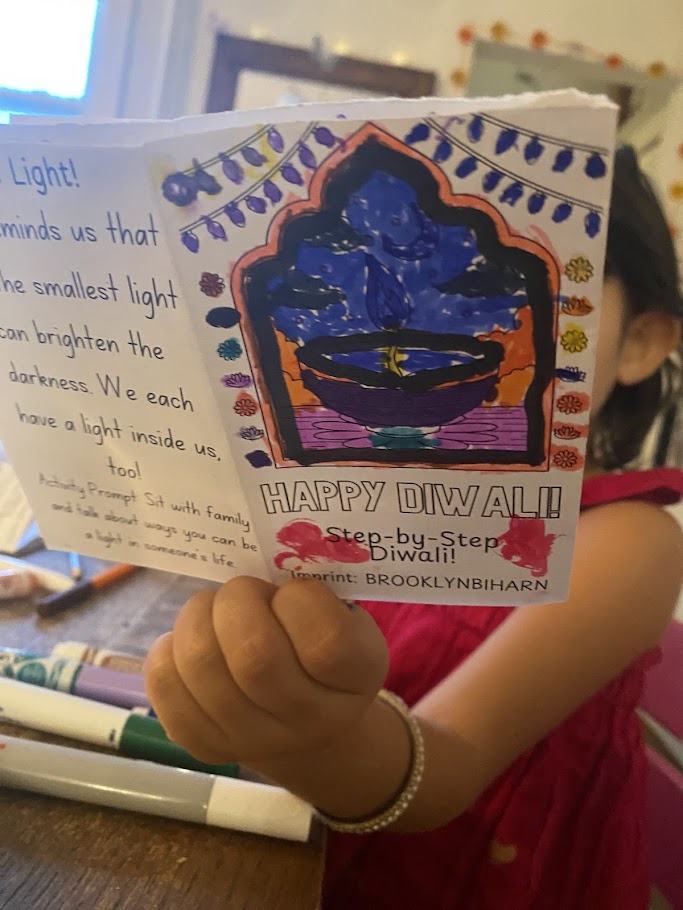 Light!
minds us that
he smallest light
can brighten the
darkness. We each
have a light inside us,
too!
Activity Prompt Sit with family
and talk about ways you can be
a light in someone's life.
HAPPY DIWALI!
Step-by-Step
Diwali!
Imprint: BROOKLYNBIHARN